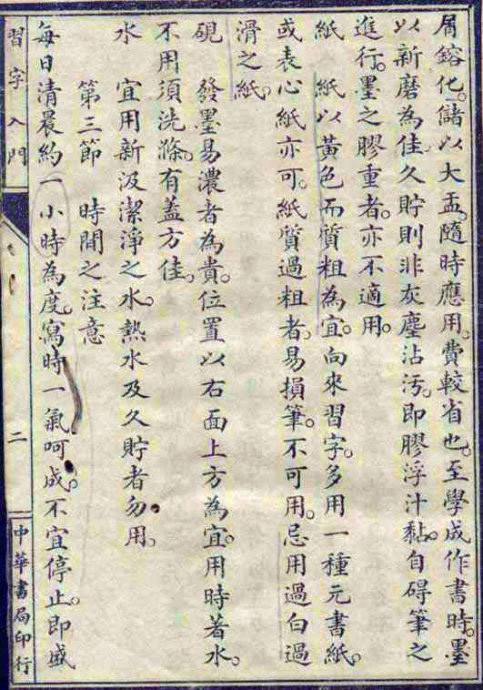 屑鎔化。儲以大盂。隨時應用。費較省也。至學成作書時。墨
以新磨為佳。久貯則非灰塵沾污。即膠浮汁黏。自碍筆之
進行。墨之膠重者。亦不適用。
紙　紙以黃色而質粗為宜。向來習字。多用一種元書紙。
或表心紙亦可。紙質過粗者。易損筆。不可用。忌用過白過
滑之紙。
硯　發墨易濃者為貴。位置以右面上方為宜。用時著水。
不用須洗滌。有蓋方佳。
水　宜用新汲潔淨之水。熱水及久貯者勿用。
第三節　時間之注意
每日清晨約一小時為度。寫時一氣呵成。不宜停止。即盛
習字入門
二
中華書局印行